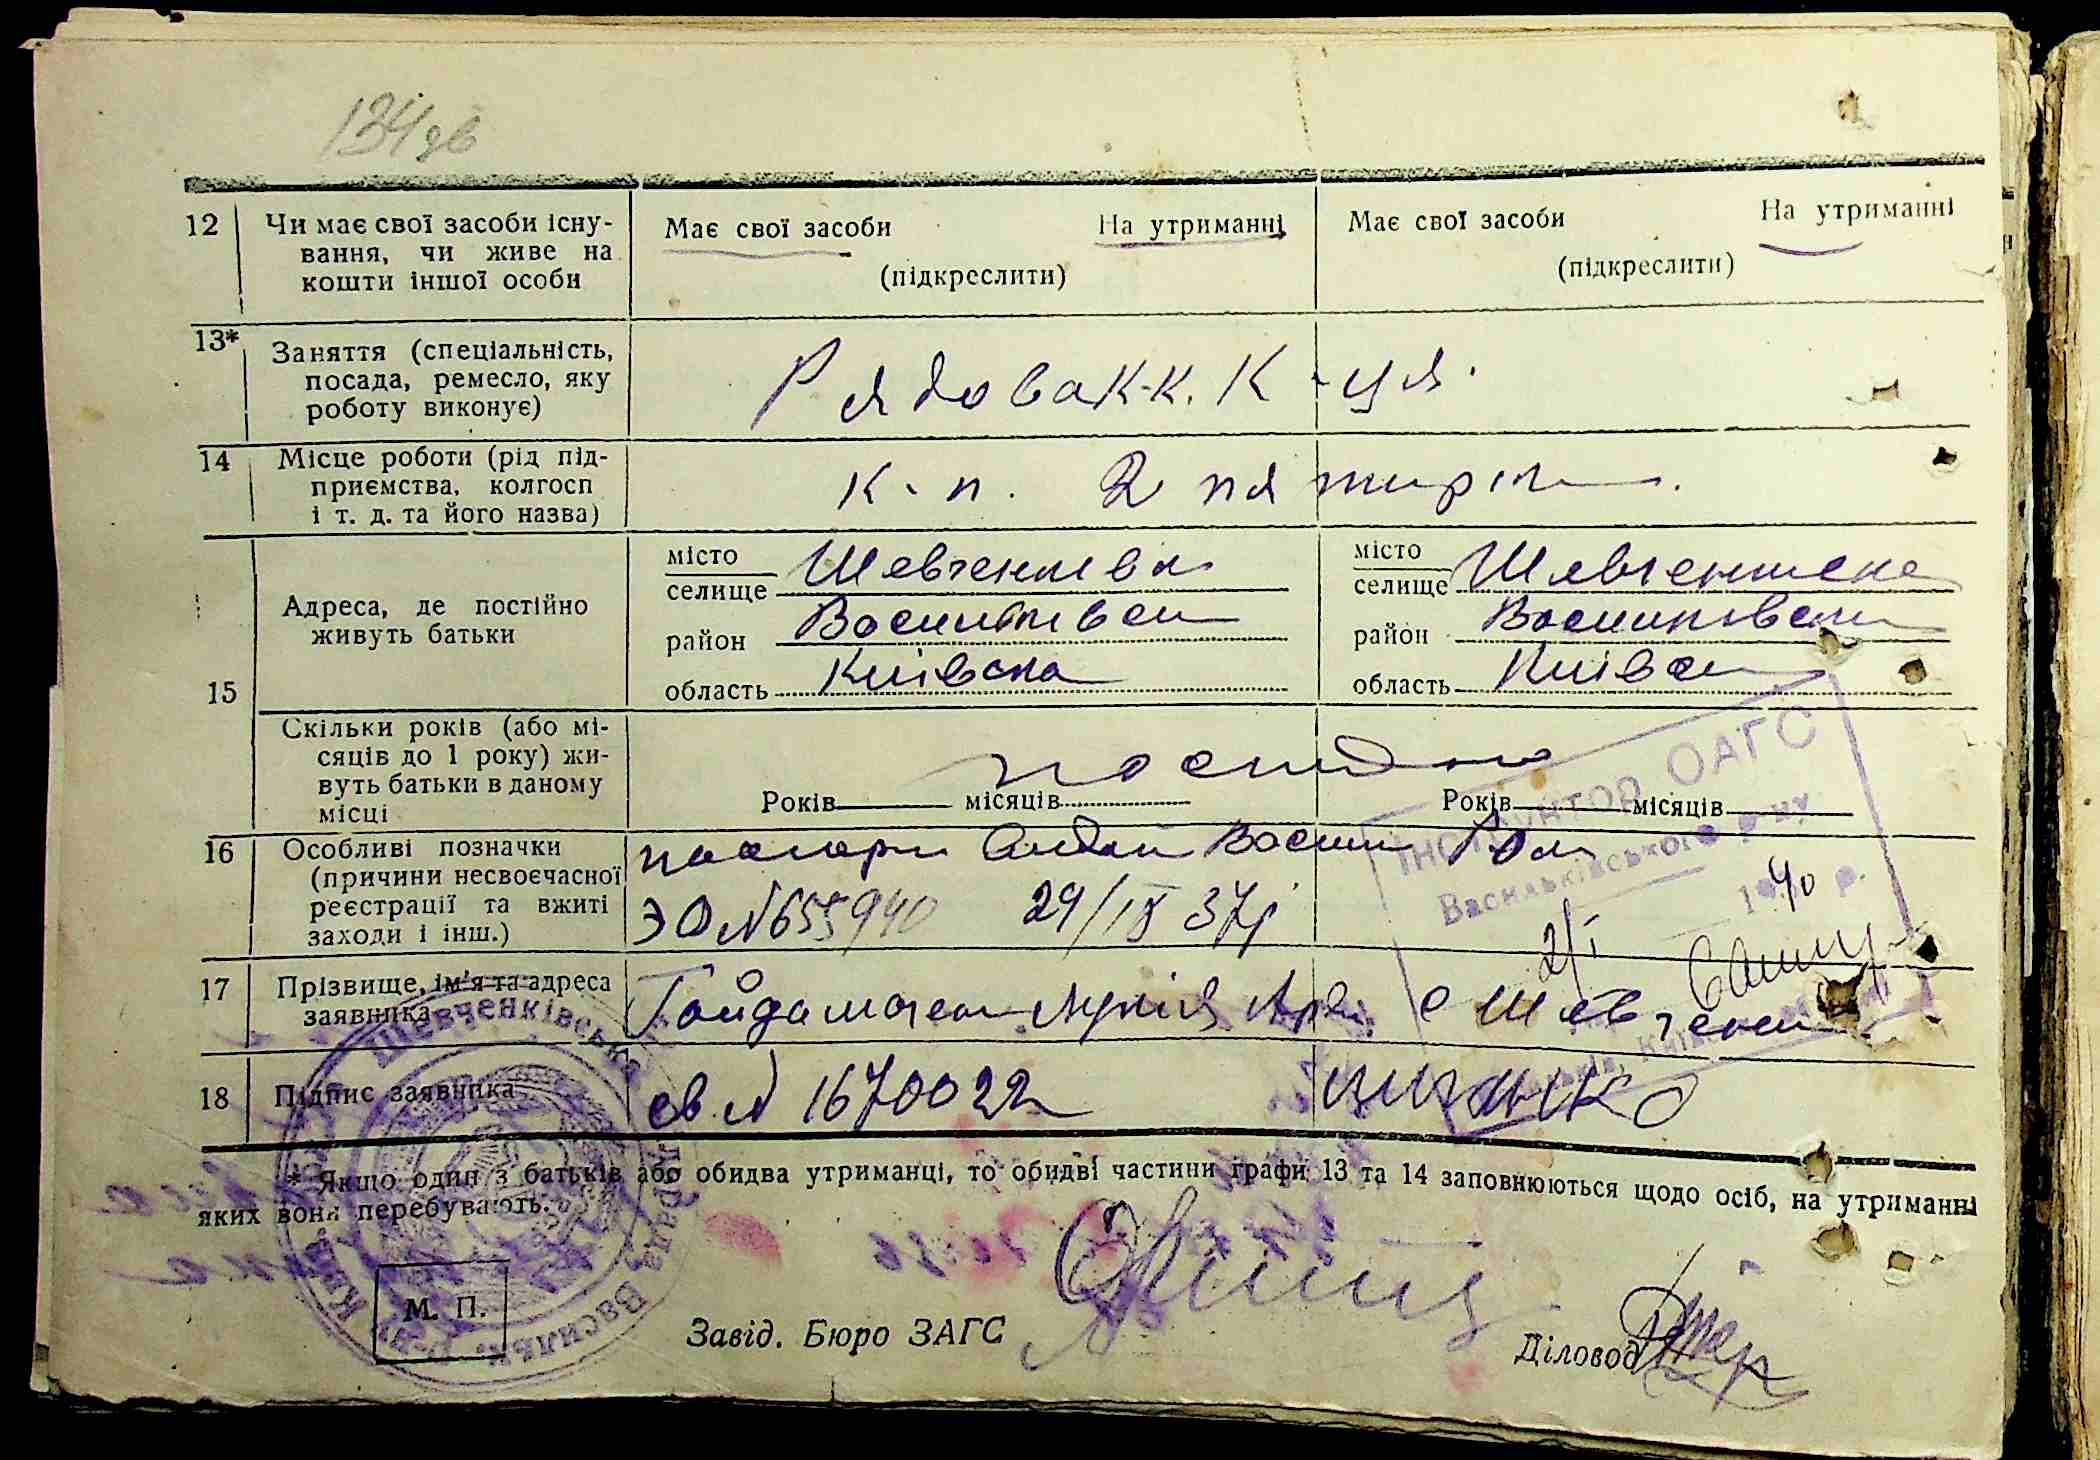 134 зв
12 Чи має свої засоби існу-
вання, чи живе на
кошти іншої особи
Має свої засоби На утриманні
(підкреслити)
Має свої засоби На утриманні
(підкреслити)
13* Заняття (спеціальність,
посада, ремесло, яку
роботу виконує)
Рядова к-к. К-ця.
14 Місце роботи (рід під-
приємства, колгосп
і т. д. та його назва)
к-п. 2 пятирічка.
15 Адреса, де постійно
живуть батьки
місто
селище Шевченківка
район Васильківськ
область Київська
місто
селище Шевченківка
район Васильківськ
область Київськ
Скільки років (або мі-
сяців до 1 року) жи-
вуть батьки в даному
місці
постійно
Років місяців
Років місяців
16 Особливі позначки
(причини несвоєчасної
реєстрації та вжиті
заходи і інш.)
паспорт Васильк
ЭО № 655940 29/IX 37р
17 Прізвище, ім'я та адреса
заявника
с Шевченк
18 Підпис заявника
св. № 1670022
* Якщо один з батьків або обидва утриманці, то обидві частини графи 13 та 14 заповнюються щодо осіб, на утриманні
яких вони перебувають.
М. П.
Завід. Бюро ЗАГС
Діловод
ІНСТРУКТОР ОАГС
Васильківського р-ну
2/I 1940 р.
Шевченківська